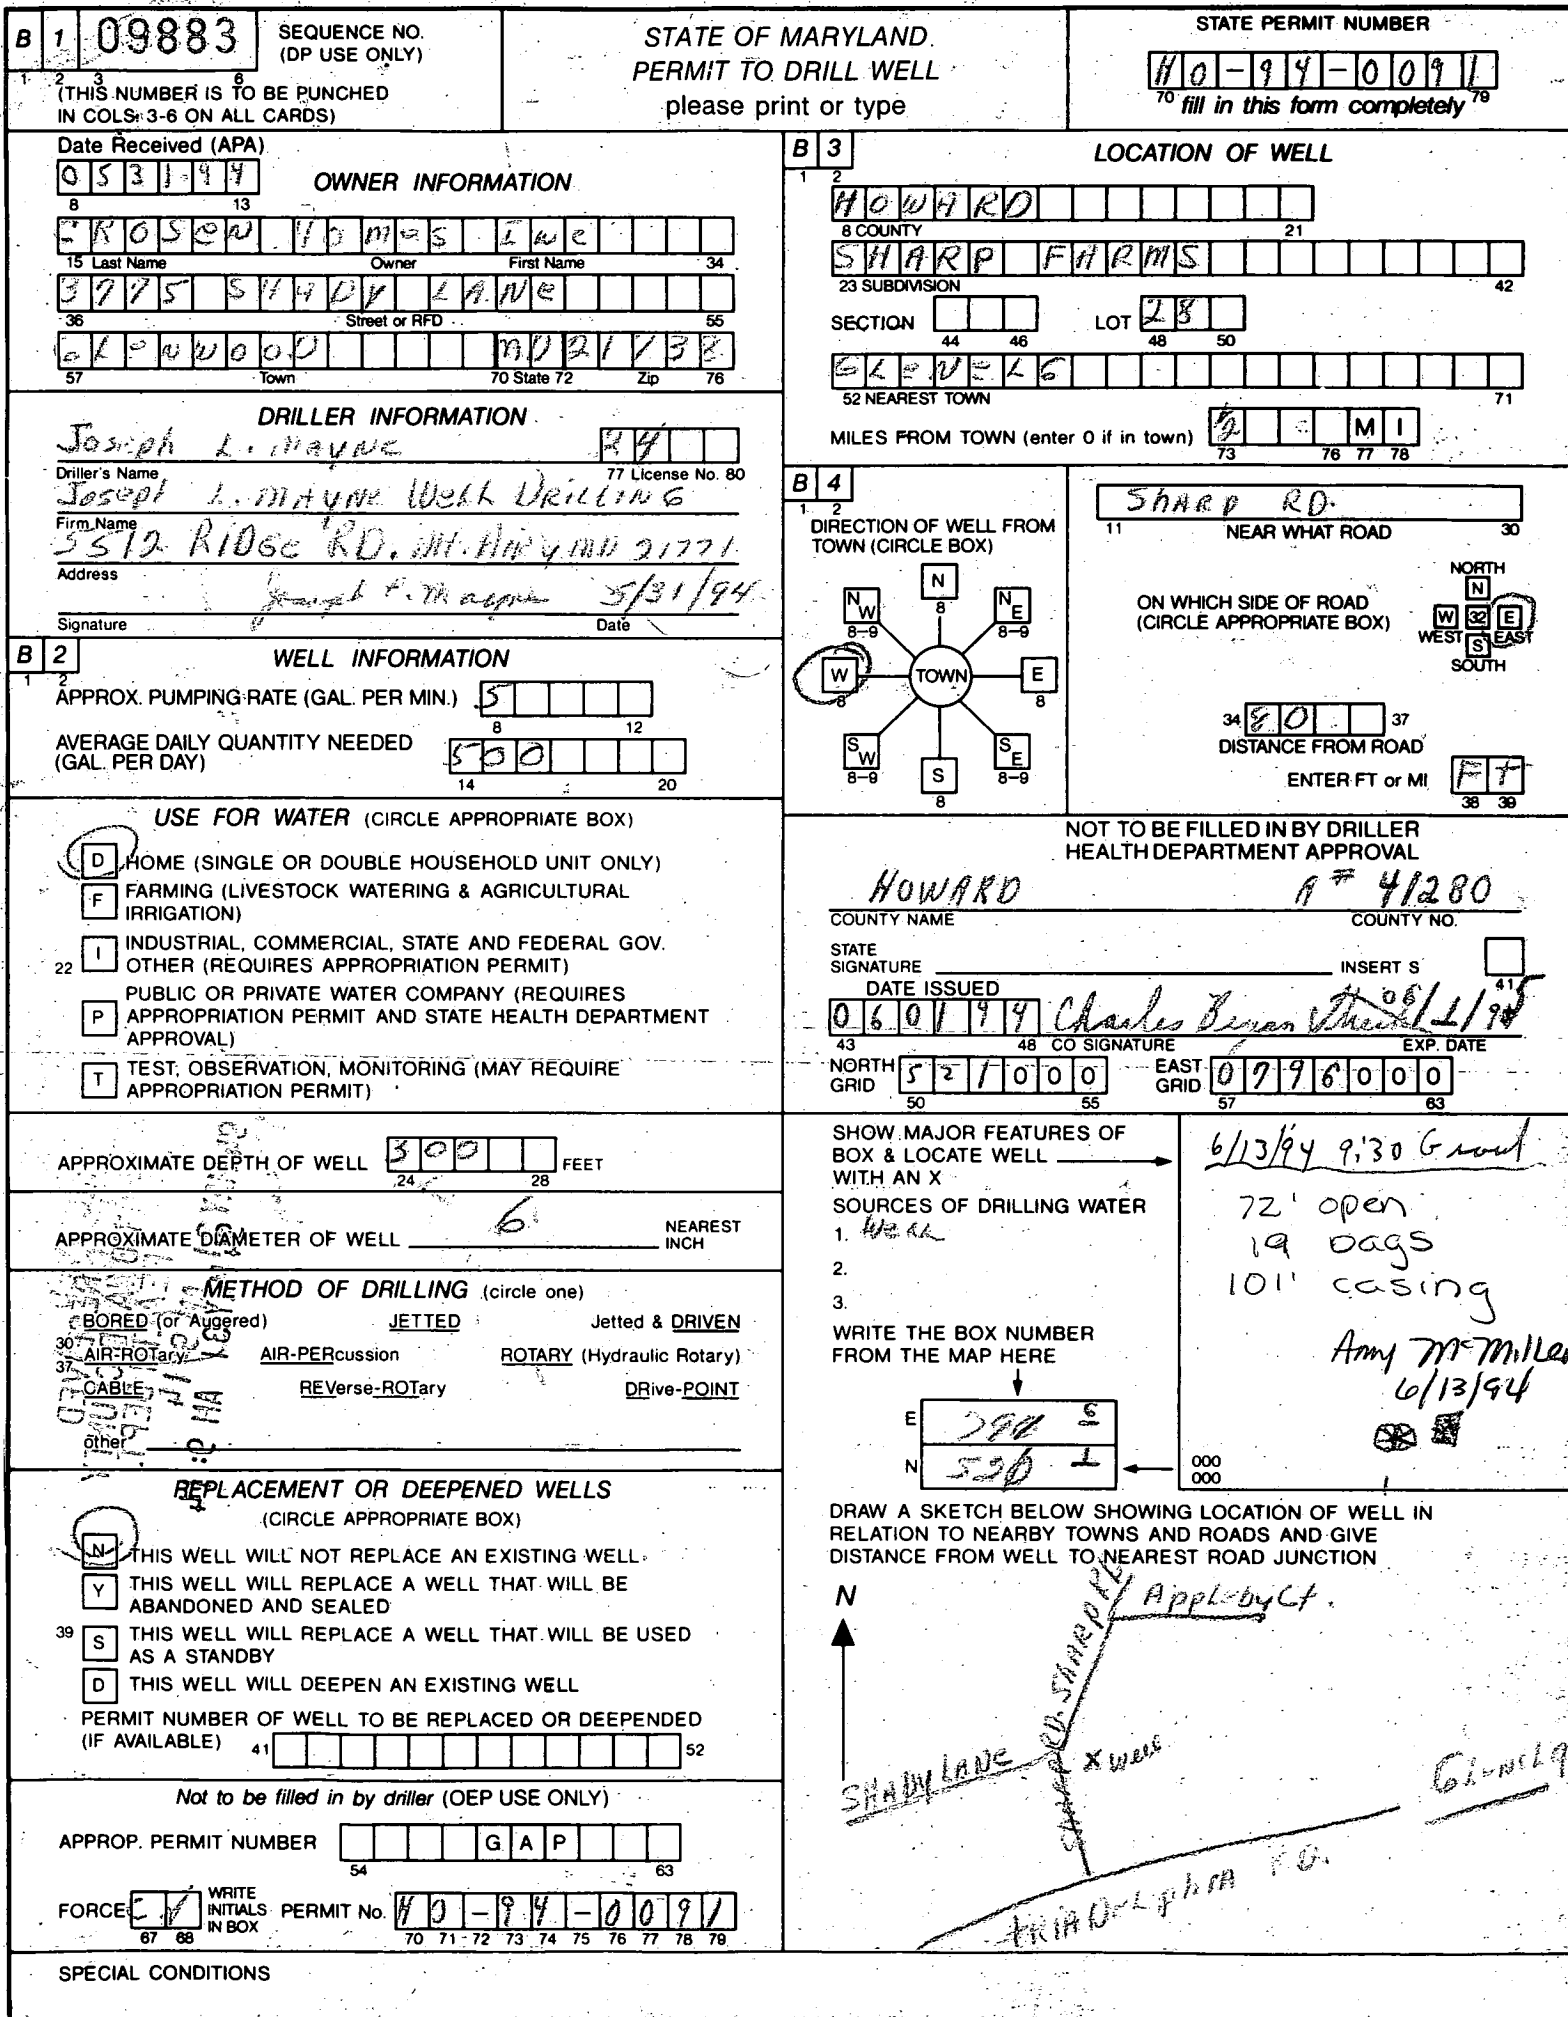 B 1 09883 SEQUENCE NO.
(DP USE ONLY)
1 2 3 6
(THIS NUMBER IS TO BE PUNCHED
IN COLS. 3-6 ON ALL CARDS)
STATE OF MARYLAND
PERMIT TO DRILL WELL
please print or type
STATE PERMIT NUMBER
HO-94-0091
70 fill in this form completely 79
Date Received (APA)
053194
8 13
OWNER INFORMATION
Homes Inc
15 Last Name Owner First Name 34
3775 SHADY LANE
36 Street or RFD 55
GLENWOOD MD 21738
57 Town 70 State 72 Zip 76
DRILLER INFORMATION
Joseph L. MAYNE 24
Driller's Name 77 License No. 80
Joseph L. MAYNE Well DRILLING
Firm Name
5512 RIDGE RD. Mt. AIRY MD 21771
Address
Joseph L. Mayne 5/31/94
Signature Date
B 2 WELL INFORMATION
1 2
APPROX. PUMPING RATE (GAL. PER MIN.) 5
8 12
AVERAGE DAILY QUANTITY NEEDED
(GAL. PER DAY) 500
14 20
USE FOR WATER (CIRCLE APPROPRIATE BOX)
D HOME (SINGLE OR DOUBLE HOUSEHOLD UNIT ONLY)
F FARMING (LIVESTOCK WATERING & AGRICULTURAL
IRRIGATION)
22 I INDUSTRIAL, COMMERCIAL, STATE AND FEDERAL GOV.
OTHER (REQUIRES APPROPRIATION PERMIT)
P PUBLIC OR PRIVATE WATER COMPANY (REQUIRES
APPROPRIATION PERMIT AND STATE HEALTH DEPARTMENT
APPROVAL)
T TEST, OBSERVATION, MONITORING (MAY REQUIRE
APPROPRIATION PERMIT)
APPROXIMATE DEPTH OF WELL 300 FEET
24 28
APPROXIMATE DIAMETER OF WELL 6 NEAREST
INCH
METHOD OF DRILLING (circle one)
BORED (or Augered) JETTED Jetted & DRIVEN
30 AIR-ROTary AIR-PERcussion ROTARY (Hydraulic Rotary)
37 CABLE REVerse-ROTary DRive-POINT
other
REPLACEMENT OR DEEPENED WELLS
(CIRCLE APPROPRIATE BOX)
N THIS WELL WILL NOT REPLACE AN EXISTING WELL
Y THIS WELL WILL REPLACE A WELL THAT WILL BE
ABANDONED AND SEALED
39 S THIS WELL WILL REPLACE A WELL THAT WILL BE USED
AS A STANDBY
D THIS WELL WILL DEEPEN AN EXISTING WELL
PERMIT NUMBER OF WELL TO BE REPLACED OR DEEPENDED
(IF AVAILABLE) 41 52
Not to be filled in by driller (OEP USE ONLY)
APPROP. PERMIT NUMBER GAP
54 63
FORCE WRITE
INITIALS
IN BOX
67 68
PERMIT No. HO-94-0091
70 71 72 73 74 75 76 77 78 79
SPECIAL CONDITIONS
B 3 LOCATION OF WELL
1 2
HOWARD
8 COUNTY 21
SHARP FARMS
23 SUBDIVISION 42
SECTION LOT 28
44 46 48 50
GLENELG
52 NEAREST TOWN 71
MILES FROM TOWN (enter 0 if in town) 2 MI
73 76 77 78
B 4
1 2
DIRECTION OF WELL FROM
TOWN (CIRCLE BOX)
N
8
NW NE
8-9 8-9
W TOWN E
8 8
SW SE
8-9 8-9
S
8
SHARP RD.
11 NEAR WHAT ROAD 30
ON WHICH SIDE OF ROAD
(CIRCLE APPROPRIATE BOX)
NORTH
N
W 32 E
WEST EAST
S
SOUTH
34 80 37
DISTANCE FROM ROAD
ENTER FT or MI Ft
38 39
NOT TO BE FILLED IN BY DRILLER
HEALTH DEPARTMENT APPROVAL
HOWARD A# 41280
COUNTY NAME COUNTY NO.
STATE
SIGNATURE INSERT S
41
DATE ISSUED
060194 Charles Bryan
43 48 CO SIGNATURE EXP. DATE
NORTH
GRID 521000
50 55
EAST
GRID 0796000
57 63
SHOW MAJOR FEATURES OF
BOX & LOCATE WELL
WITH AN X
SOURCES OF DRILLING WATER
1. Well
2.
3.
WRITE THE BOX NUMBER
FROM THE MAP HERE
E 790 6
N 520 1
000
000
6/13/94 9:30 Grout
72' open
19 bags
101' casing
Amy McMillen
6/13/94
DRAW A SKETCH BELOW SHOWING LOCATION OF WELL IN
RELATION TO NEARBY TOWNS AND ROADS AND GIVE
DISTANCE FROM WELL TO NEAREST ROAD JUNCTION
N
Appleby Ct.
SHARP RD. SHARP RD
SHADY LANE
X well
Glenelg
TRIADELPHIA RD.